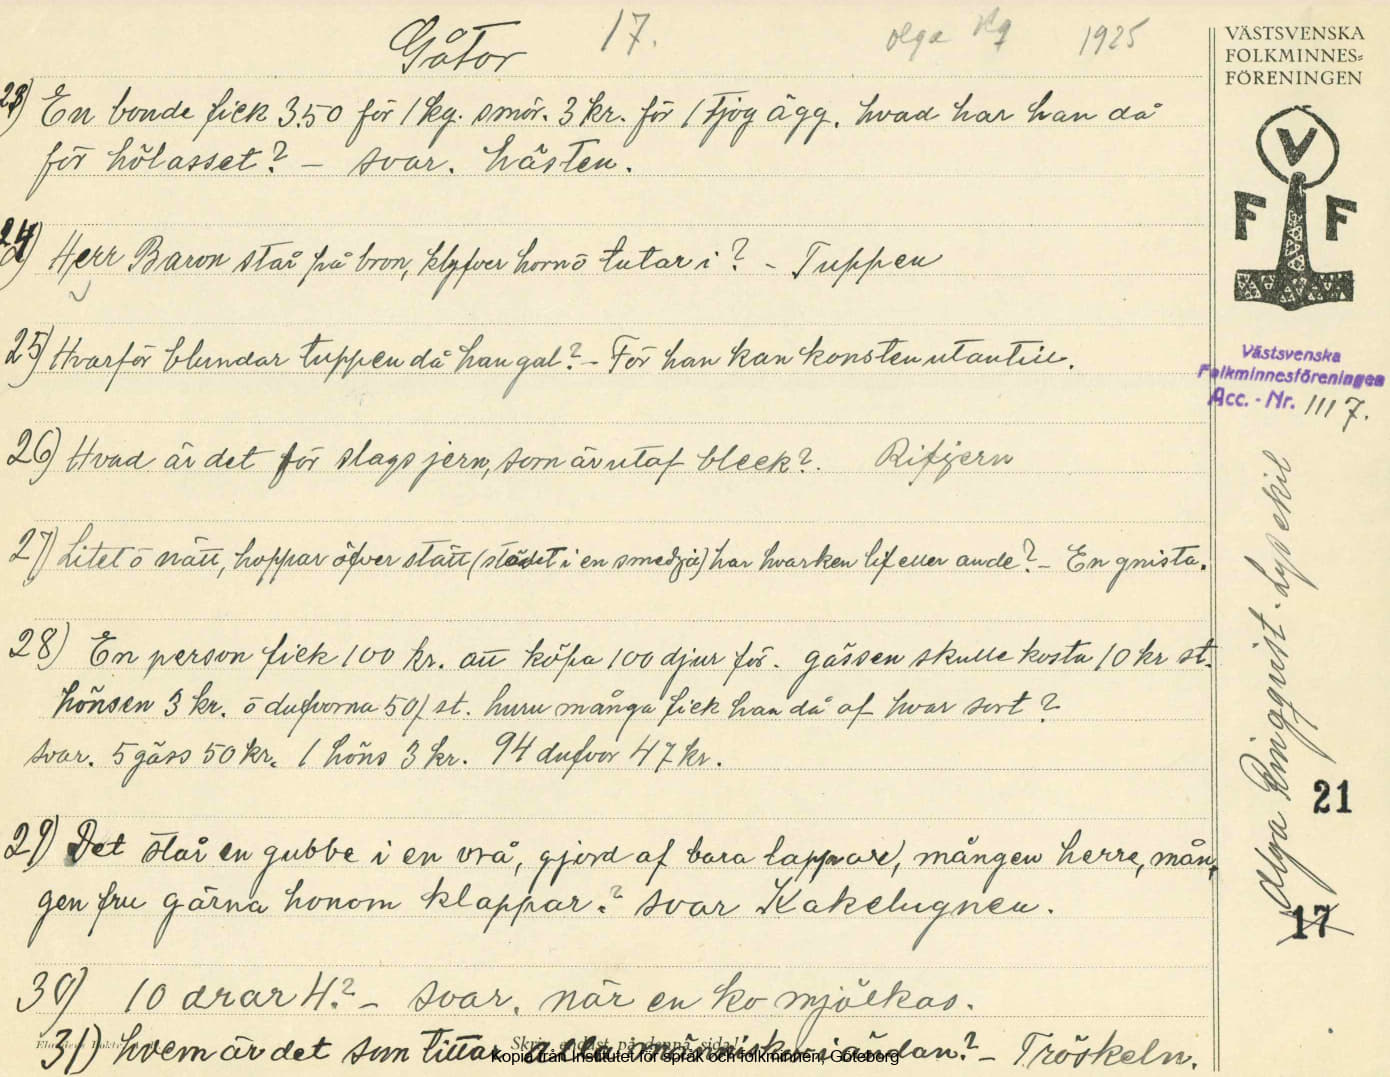 Gåtor 17. Olga Rq 1925
VÄSTSVENSKA
FOLKMINNES=
FÖRENINGEN
V
F F
23) En bonde fick 3.50 för 1 kg. smör. 3 kr. för 1 tjog ägg. hvad har han då
för hölasset? – svar. hästen.
24) Herr Baron står på bron, klyfver horn ō tutar i? – Tuppen
25) Hvarför blundar tuppen då han gal? – För han kan konsten utantill.
Västsvenska
Folkminnesföreningen
Acc. - Nr. 1117.
26) Hvad är det för slags jern, som är utaf bleck? Rifjern
27) Litet ō nätt, hoppar öfver stätt (städet i en smedja) har hvarken lif eller ande? – En gnista.
28) En person fick 100 kr. att köpa 100 djur för. gässen skulle kosta 10 kr st.
hönsen 3 kr. ō dufvorna 50/ st. huru många fick han då af hvar sort?
svar. 5 gäss 50 kr. 1 höns 3 kr. 94 dufvor 47 kr.
29) Det står en gubbe i en vrå, gjord af bara lappar, mången herre, mån-
gen fru gärna honom klappar.? svar Kakelugnen.
30) 10 drar 4? – svar. när en ko mjölkas.
31) hvem är det som tittar alla människor i ändan? – Tröskeln.
Skriv endast på denna sida!
Kopia från Institutet för språk och folkminnen, Göteborg
Olga Ringqvist. Lysekil
21
17